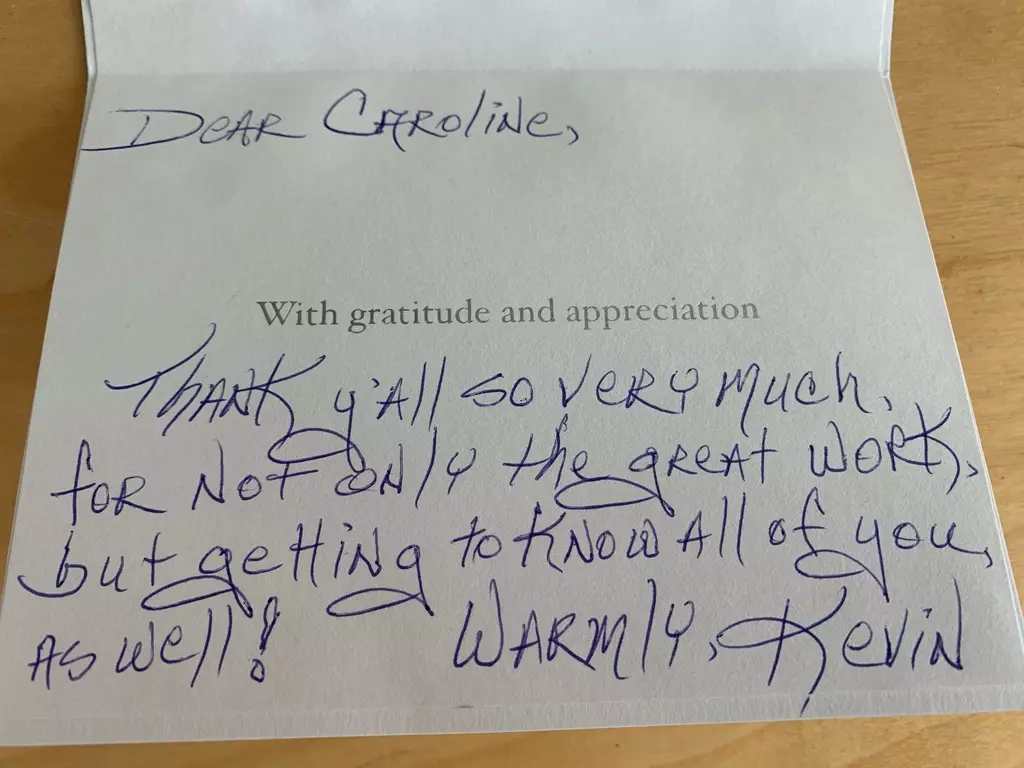 Dear Caroline,
With gratitude and appreciation
Thank y'all so very much,
for not only the great work,
but getting to know all of you,
as well! Warmly, Kevin